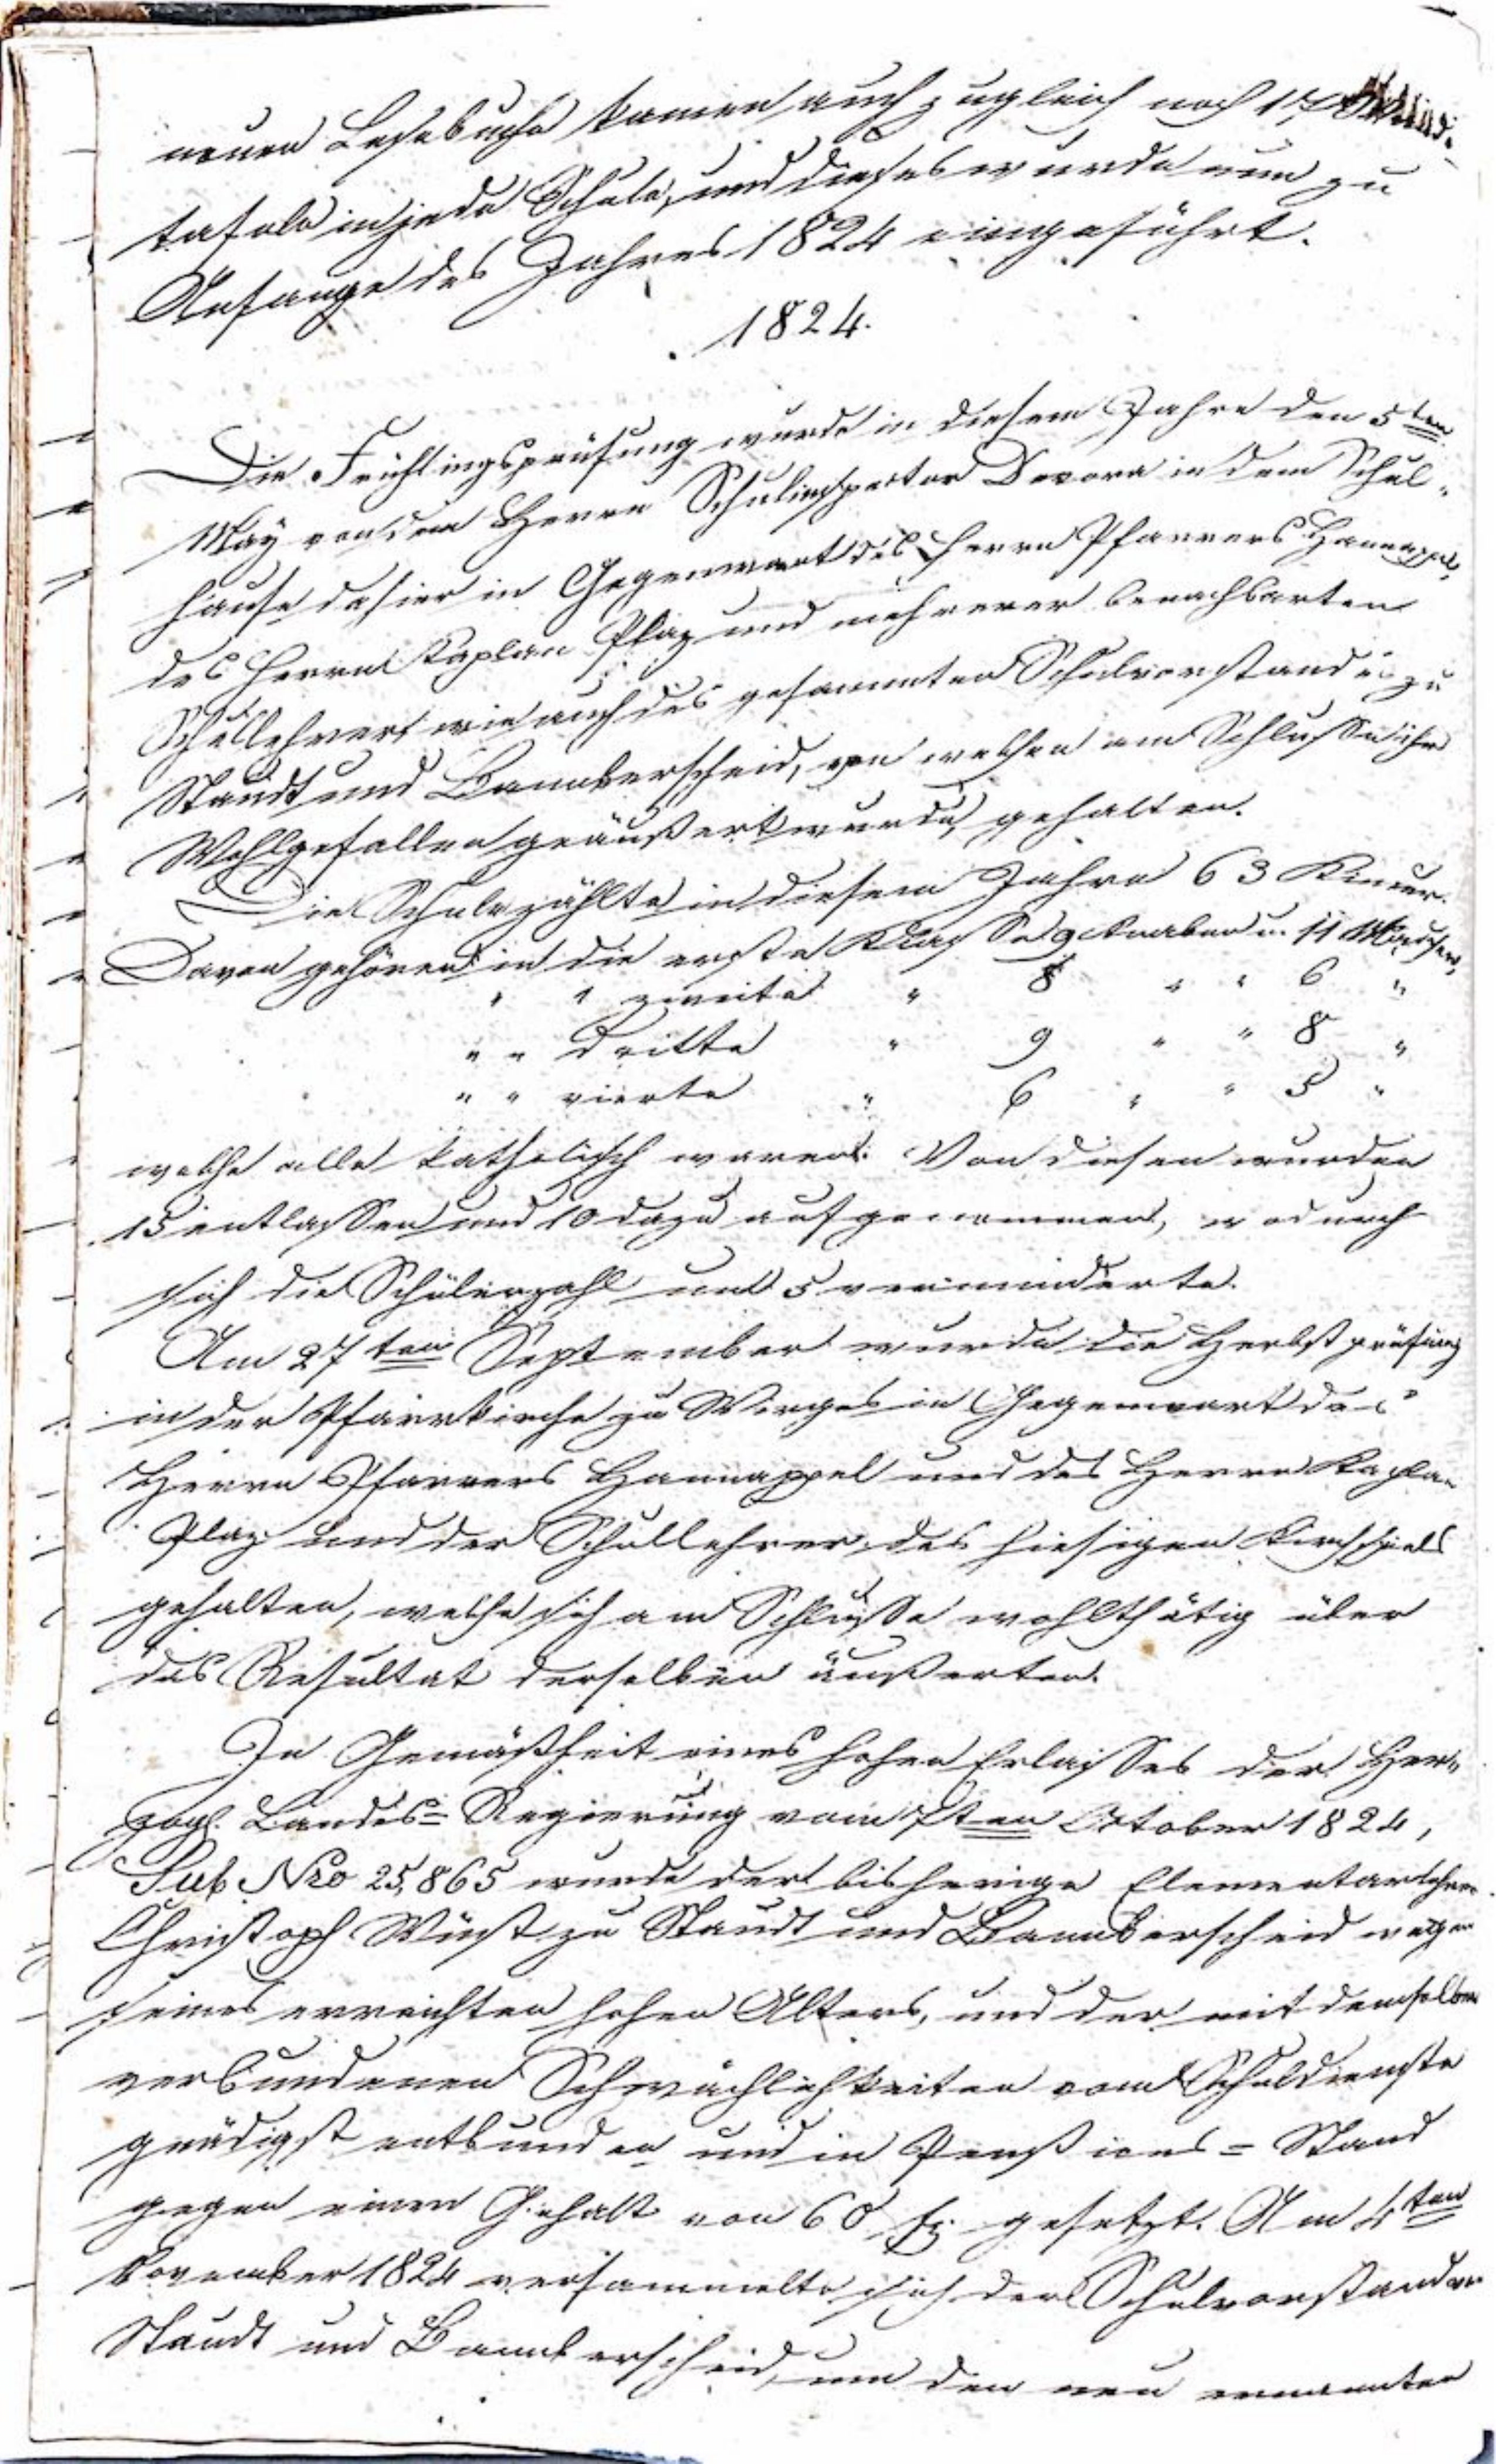 neuen Lesebuche kamen auch zugleich noch 17 Wand-
tafeln in jede Schule, und dieses wurde nun zu
Anfange des Jahres 1824 eingeführt.
1824.
Die Frühlingsprüfung wurde in diesem Jahre den 5ten
May von dem Herrn Schulinspector Devora in dem Schul-
hause dahier in Gegenwart des Herrn Pfarrers Hannappel,
des Herrn Kaplan Plaz und mehrerer benachbarten
Schullehrer wie auch des gesammten Schulvorstandes zu
Staudt und Bannberscheid, von welchen am Schlusse ihr
Wohlgefallen geäußert wurde, gehalten.
Die Schule zählte in diesem Jahre 63 Kinder.
Davon gehören in die erste Klasse 9 Knaben u. 11 Mädchen,
" " zweite " 8 " " 6 "
" " dritte " 9 " " 8 "
" " vierte " 6 " " 5 "
welche alle katholisch waren. Von diesen wurden
15 entlassen und 10 dazu aufgenommen, wodurch
sich die Schülerzahl um 5 verminderte.
Am 27ten September wurde die Herbstprüfung
in der Pfarrkirche zu Wirges in Gegenwart des
Herrn Pfarrers Hannappel und des Herrn Kaplan
Plaz und der Schullehrer des hiesigen Kirchspiels
gehalten, welche sich am Schlusse wohlthätig über
das Resultat derselben äußerten.
In Gemäßheit eines hohen Erlasses der Her-
zogl. Landes-Regierung vom 7ten October 1824,
Sub Nro 25,865 wurde der bisherige Elementarlehrer
Christoph Wüst zu Staudt und Bannberscheid wegen
seines erreichten hohen Alters, und der mit demselben
verbundenen Schwächlichkeiten vom Schuldienste
gnädigst entbunden und in Pensions-Stand
gegen einen Gehalt von 60 fl. gesetzt. Am 4ten
November 1824 versammelte sich der Schulvorstand von
Staudt und Bannberscheid, um den neu ernannten